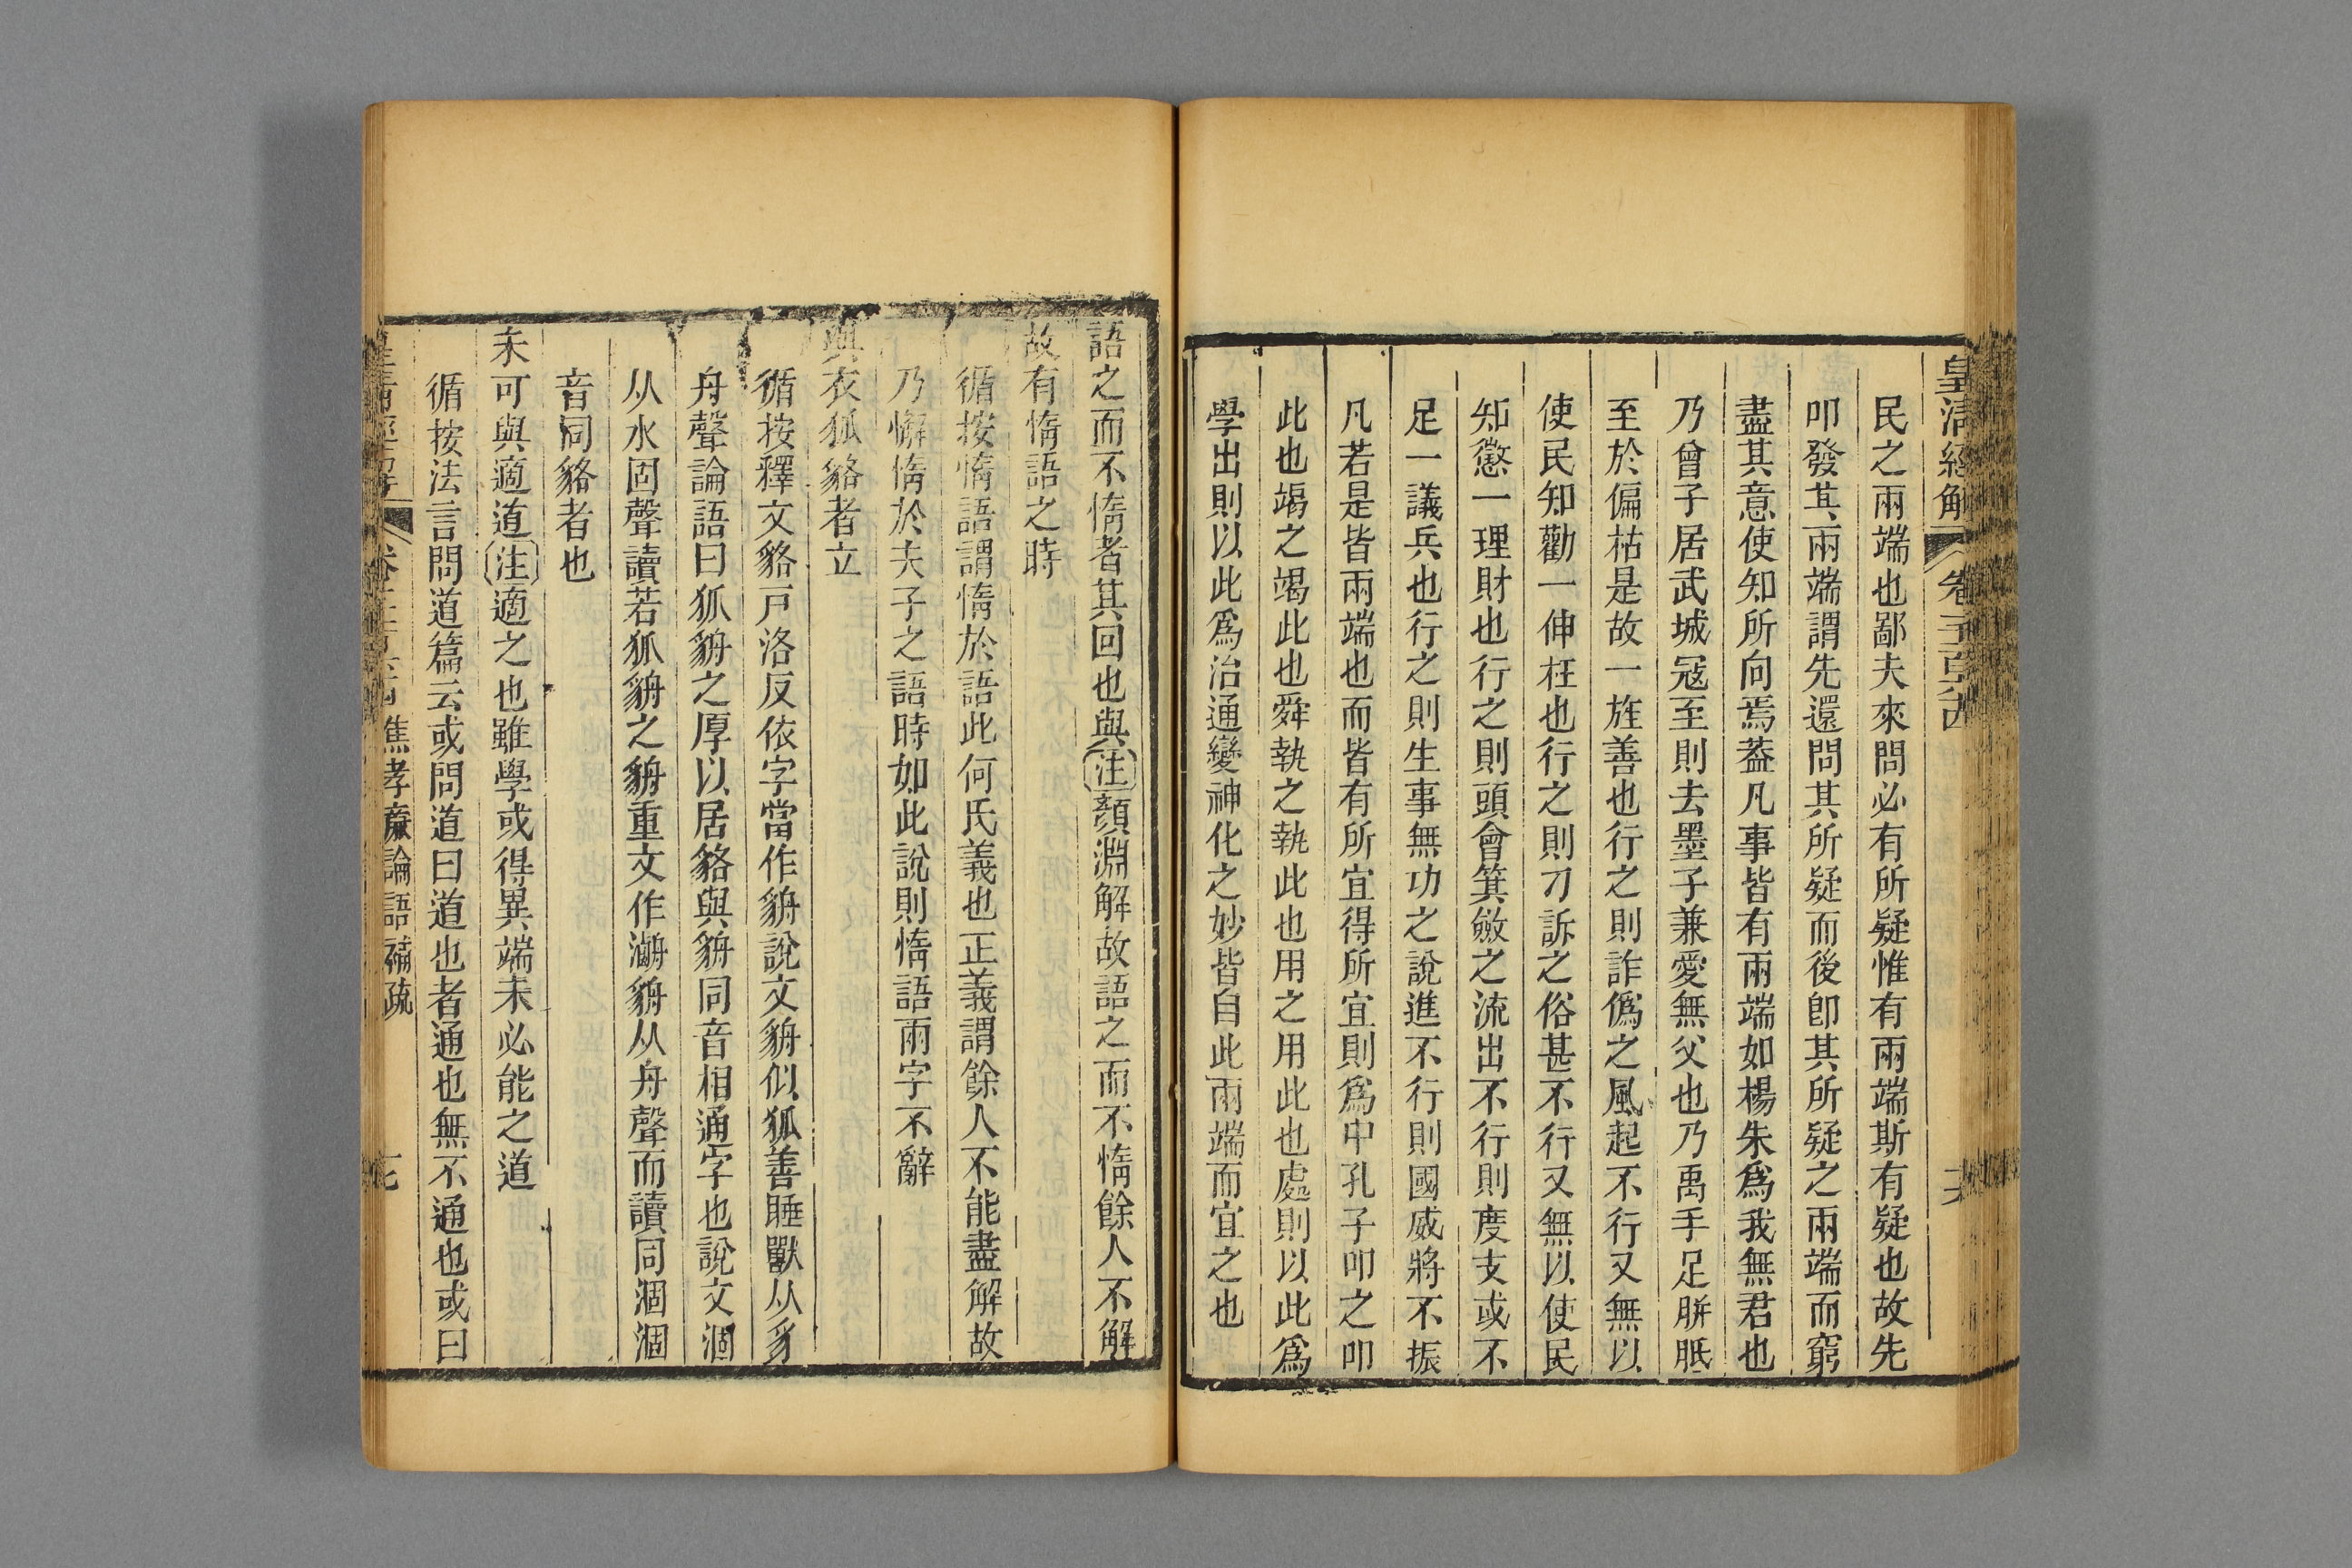 皇清經解
民之兩端也鄙夫來問必有所疑惟有兩端斯有疑也故先
叩發其兩端謂先還問其所疑而後卽其所疑之兩端而窮
盡其意使知所向焉葢凡事皆有兩端如楊朱爲我無君也
乃曾子居武城寇至則去墨子兼愛無父也乃禹手足胼胝
至於偏枯是故一旌善也行之則詐僞之風起不行又無以
使民知勸一伸枉也行之則刁訴之俗甚不行又無以使民
知懲一理財也行之則頭會箕斂之流出不行則度支或不
足一議兵也行之則生事無功之說進不行則國威將不振
凡若是皆兩端也而皆有所宜得所宜則爲中孔子叩之叩
此也竭之竭此也舜執之執此也用之用此也處則以此爲
學出則以此爲治通變神化之妙皆自此兩端而宜之也
語之而不惰者其回也與注顏淵解故語之而不惰餘人不解
故有惰語之時
循按惰語謂惰於語此何氏義也正義謂餘人不能盡解故
乃懈惰於夫子之語時如此說則惰語兩字不辭
與衣狐貉者立
循按釋文貉戸洛反依字當作貈說文貈似狐善睡獸从豸
舟聲論語曰狐貈之厚以居貉與貈同音相通字也說文涸
从水固聲讀若狐貈之貈重文作𤅷貈从舟聲而讀同涸涸
音同貉者也
未可與適道注適之也雖學或得異端未必能之道
循按法言問道篇云或問道曰道也者通也無不通也或曰
焦孝廉論語補疏